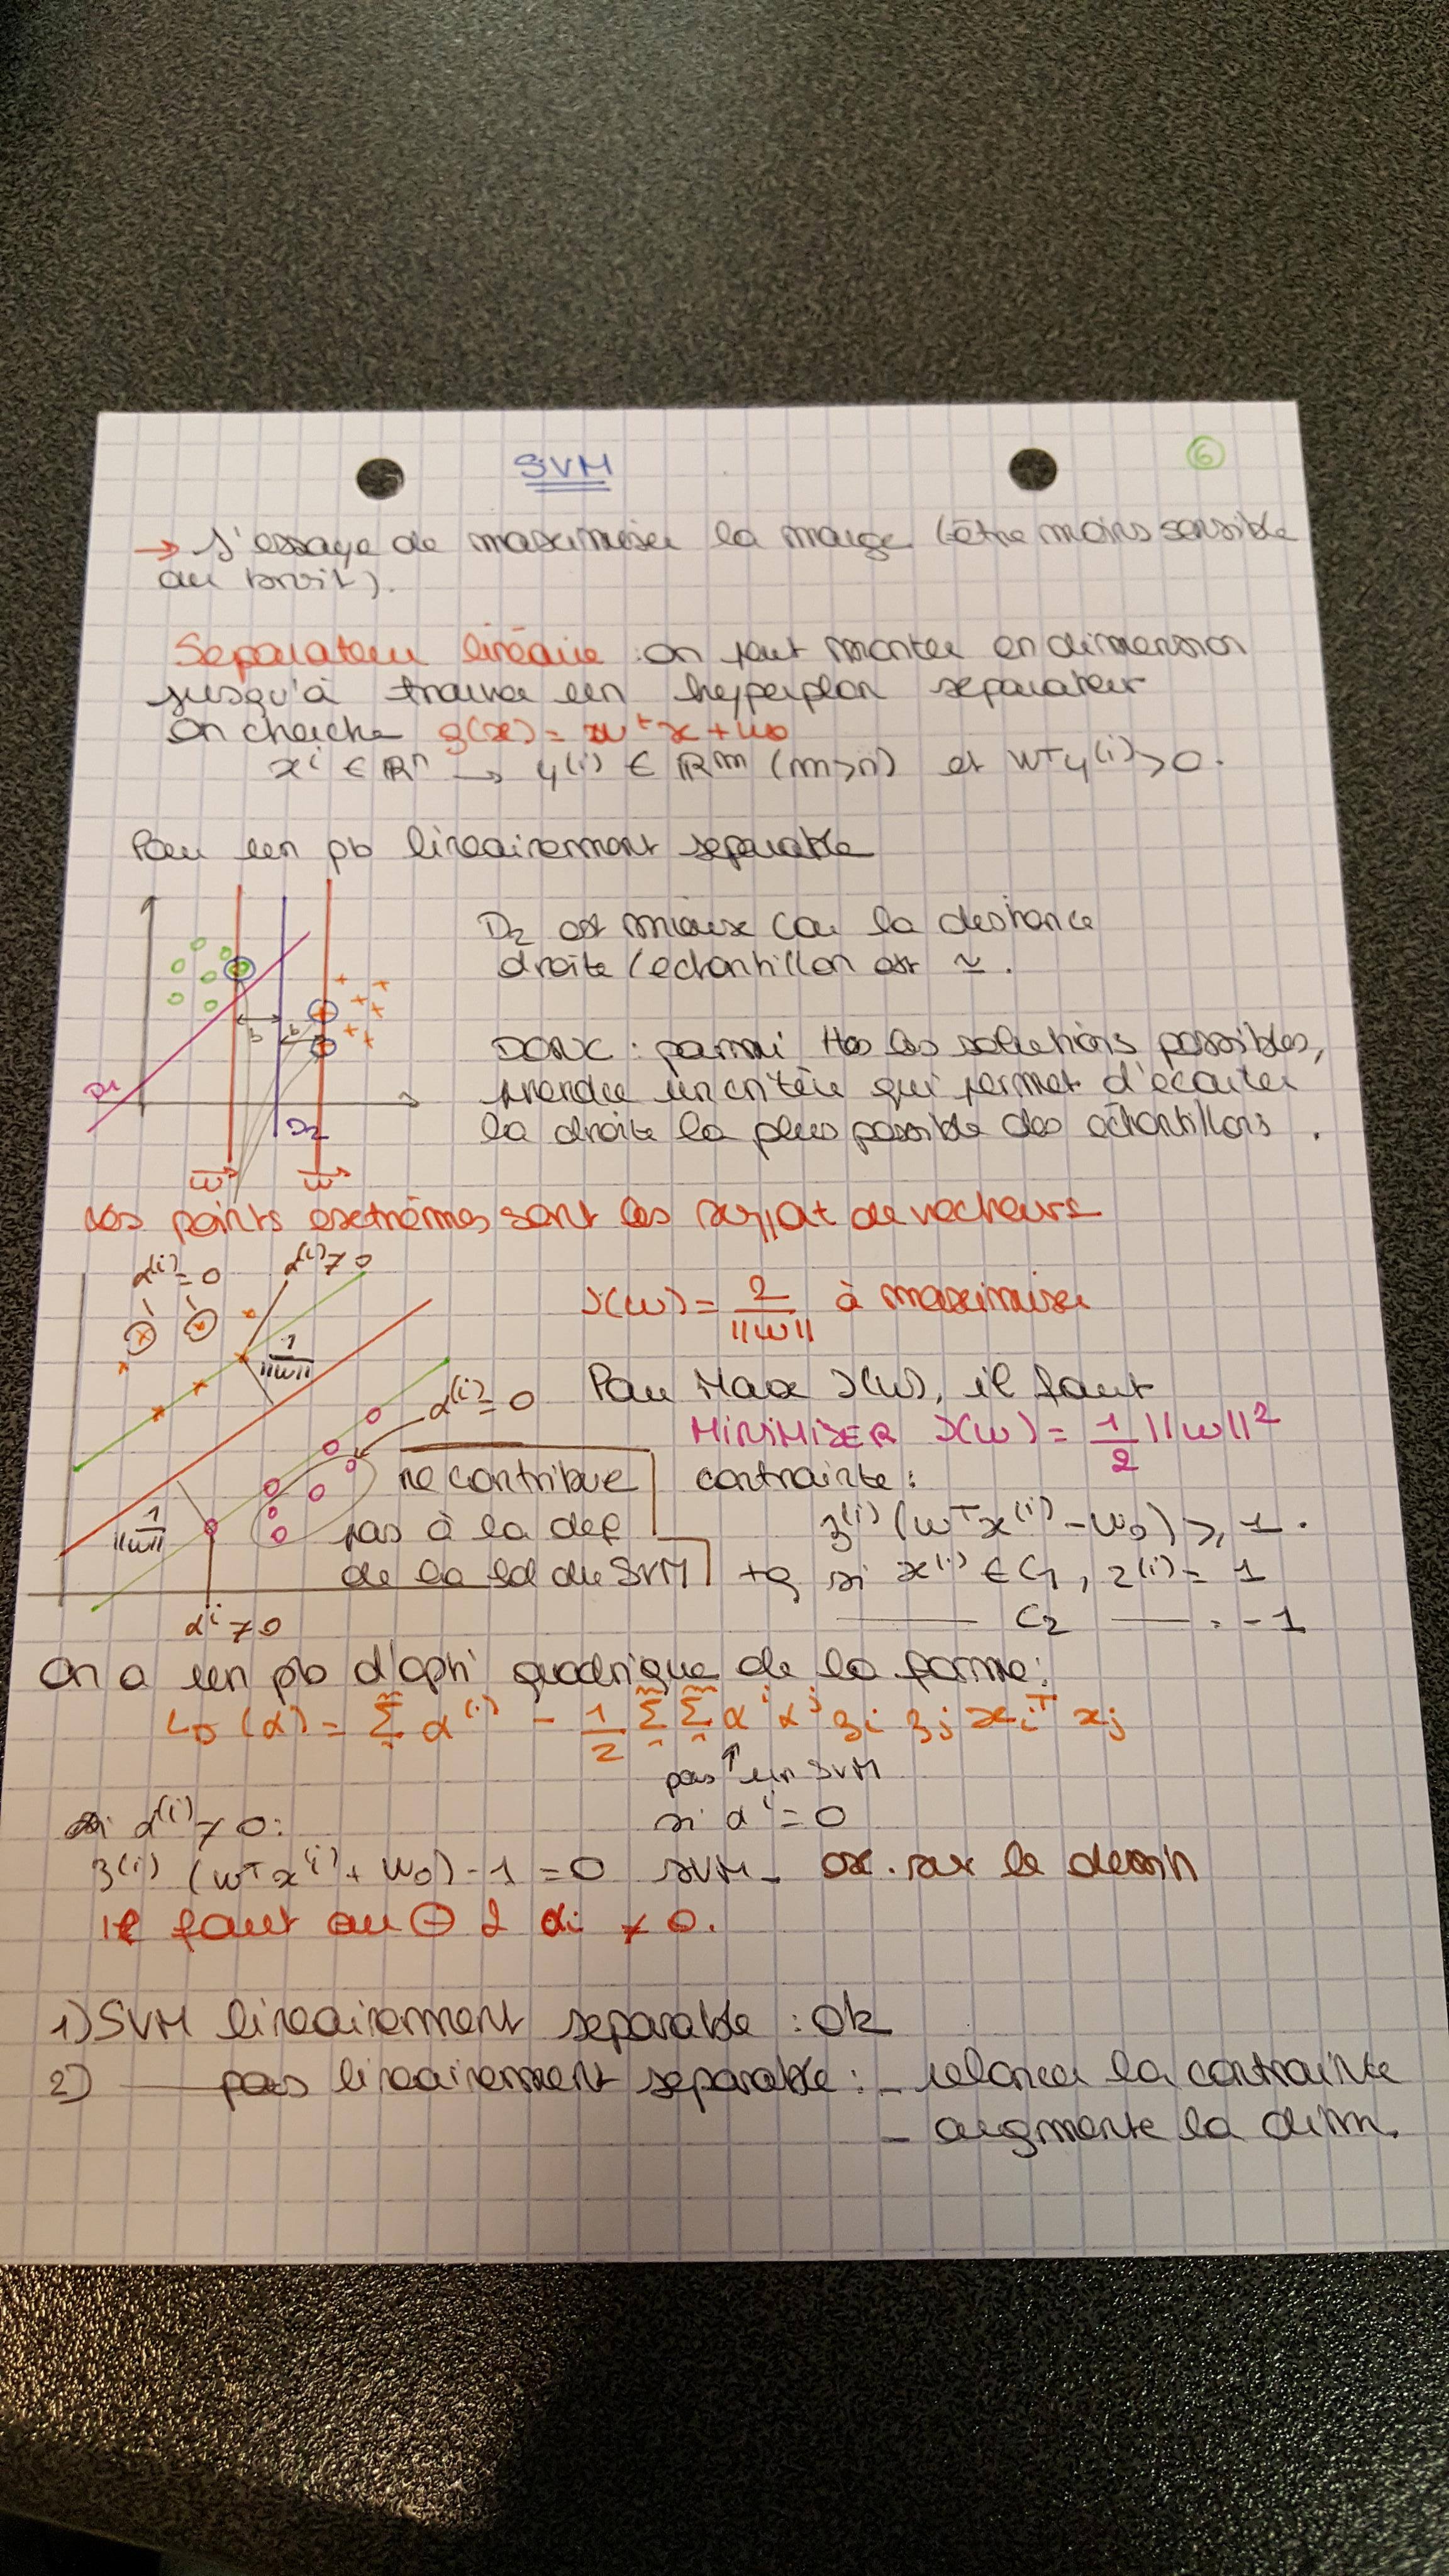 SVM
6
→ J'essaye de maximiser la marge (être moins sensible
au bruit).
Separateur linéaire : on peut monter en dimension
jusqu'à trouver un hyperplan separateur
On cherche g(x) = w^T x + w0
x^i ∈ R^n → y^(i) ∈ R^m (m>n) et w^T y^(i) > 0.
Pour un pb lineairement separable
D2 est mieux car la distance
droite/echantillon est ≃.
DONC : parmi ttes les solutions possibles,
prendre un critère qui permet d'écarter
la droite la plus possible des échantillons.
b
b
D1
D2
w
w
Les points extrêmes sont les support de vecteurs
α^(i) = 0
α^(i) ≠ 0
J(w) = 2/||w|| à maximiser
1/||w||
α^(i) = 0
Pour Max J(w), il faut
MINIMISER J(w) = 1/2 ||w||^2
ne contribue
pas à la def
de la sol du SVM
contrainte :
1/||w||
z^(i) (w^T x^(i) - w0) ≥ 1.
tq si x^(i) ∈ C1, z^(i) = 1
—— C2 —— = -1
α^i ≠ 0
On a un pb d'opti quadrique de la forme :
LD (α) = Σ α^(i) - 1/2 Σ Σ α^i α^j zi zj xi^T xj
pas un SVM
si α^i = 0
si α^(i) ≠ 0 :
z^(i) (w^T x^(i) + w0) - 1 = 0 SVM - ex. sur le dessin
Il faut au ⊖ 2 αi ≠ 0.
1) SVM lineairement separable : Ok
2) —— pas lineairement separable : - relancer la contrainte
- augmente la dim.